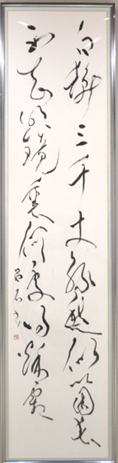 白髪三千丈縁愁似箇長
不知明鏡裏何處得秋霜